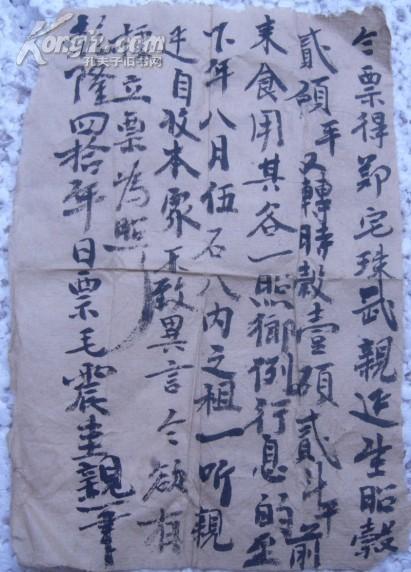 今票得鄭宅珠武親迋生眙穀
貳碩平又轉時穀壹碩貳斗平前
来食用其谷一照鄉例行息的至
下年八月伍石八内之租一听親
迋自收本家不敢異言今欲有
立票為照
隆四拾年日票毛震圭親筆
Kongfz.com
孔夫子旧书网